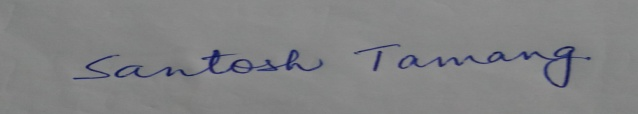 Santosh Tamang